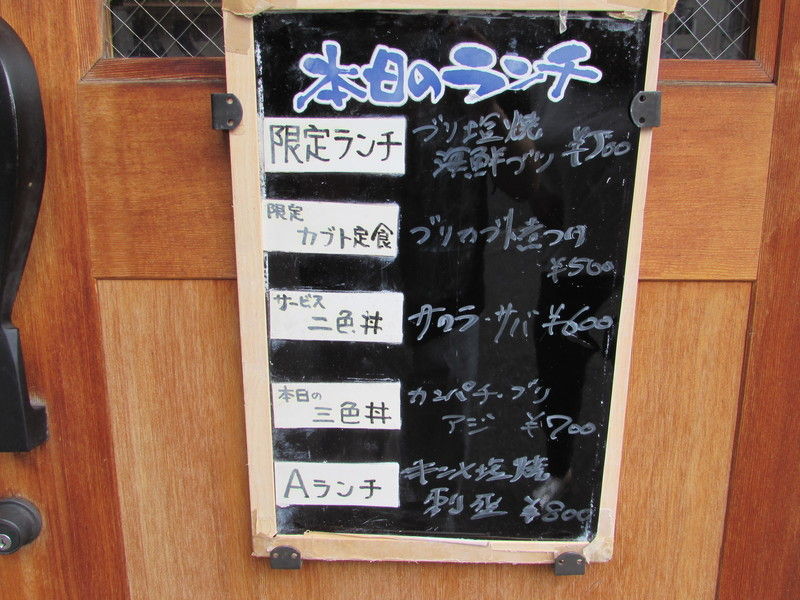 本日のランチ
限定ランチ
ブリ塩焼
海鮮ブツ ¥500
限定
カブト定食
ブリカブト煮つけ
¥500
サービス
二色丼
サワラ・サバ ¥600
本日の
三色丼
カンパチ・ブリ
アジ ¥700
Aランチ
キンメ塩焼
刺盛 ¥800